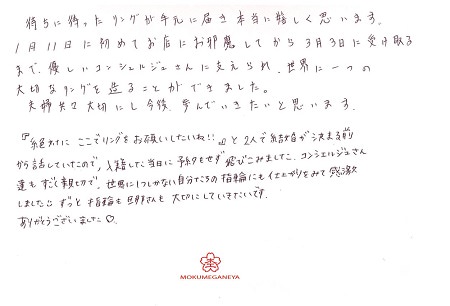 待ちに待ったリングが手元に届き本当に嬉しく思います。
1月11日に初めてお店にお邪魔してから3月3日に受け取る
まで、優しいコンシェルジュさんに支えられ、世界に一つの
大切なリングを造ることができました。
夫婦共々大切にし今後、歩んでいきたいと思います。
『絶対に ここでリングをお願いしたいね!!』と2人で結婚が決まる前
から話していたので、入籍した当日に予約もせず飛びこみました。コンシェルジュさん
達もすごく親切で、世界に1つしかない自分たちの指輪にも仕上がりをみて感激
しました。ずっと指輪も旦那さんも大切にしていきたいです。
ありがとうございました♡。
MOKUMEGANEYA